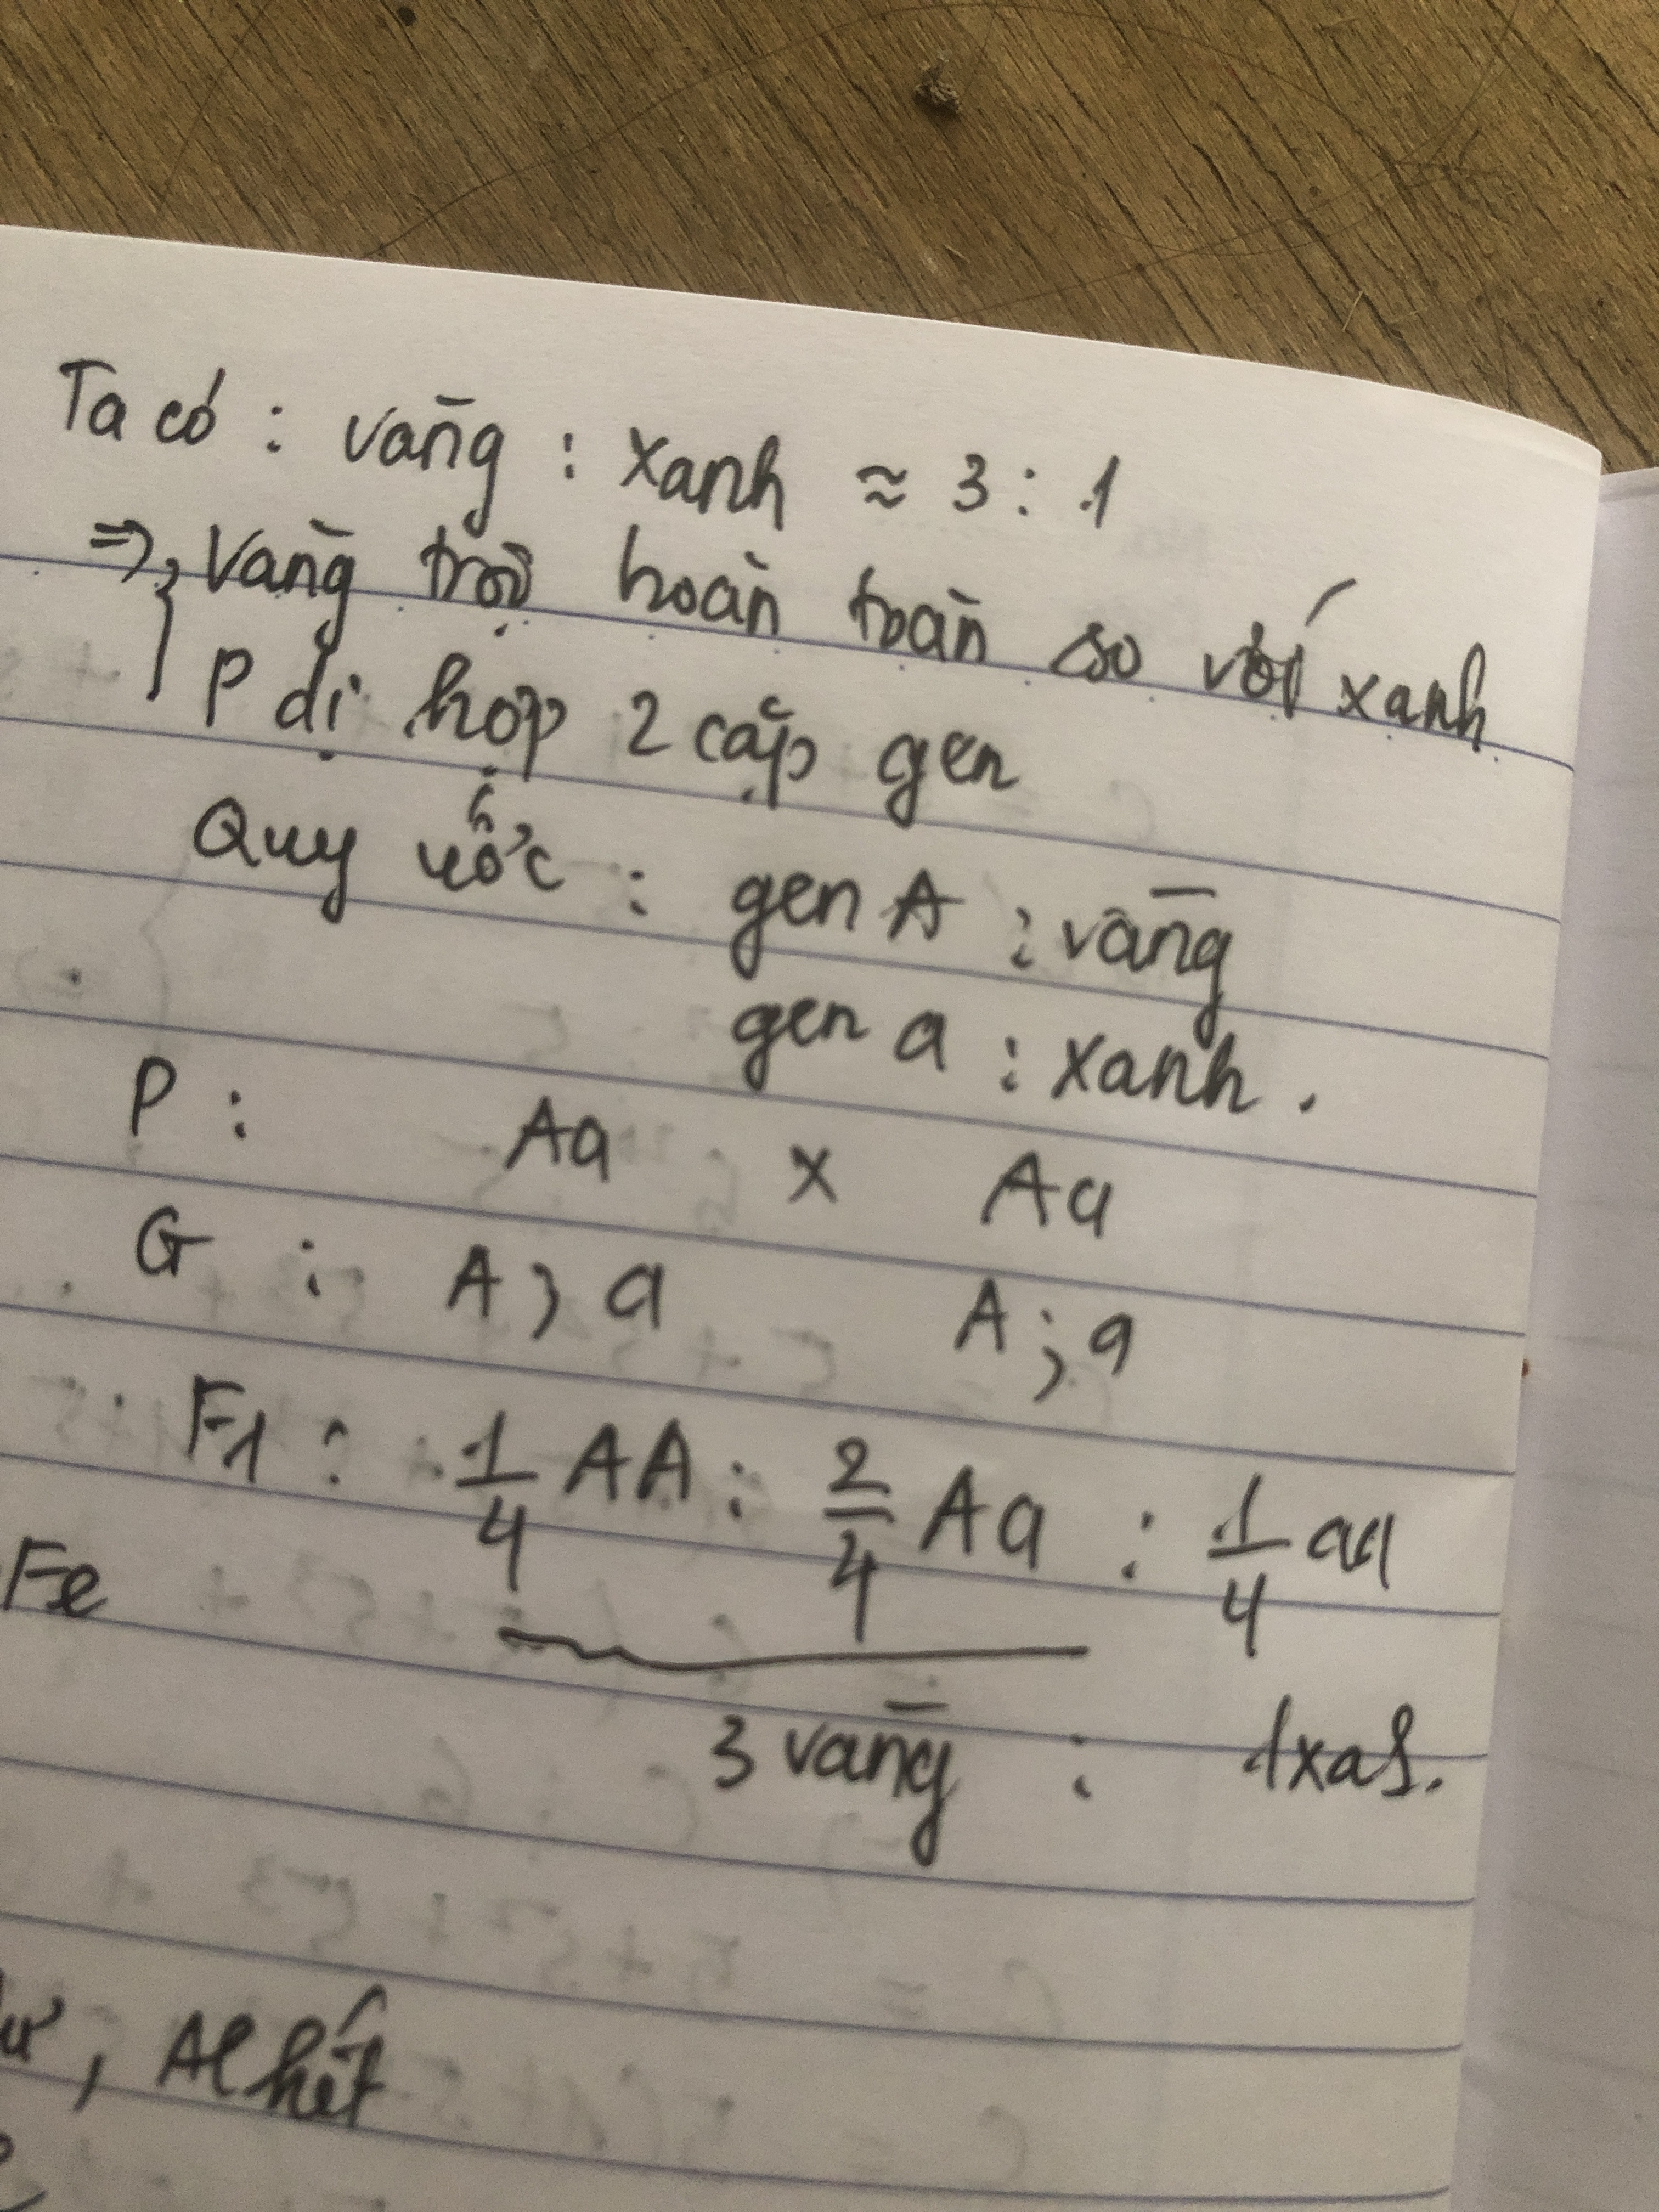 Ta có : vàng : xanh ≈ 3 : 1
⇒ { Vàng trội hoàn toàn so với xanh
P dị hợp 2 cặp gen
Quy ước : gen A : vàng
gen a : xanh .
P : Aa x Aa
G : A ; a A ; a
F1 : 1/4 AA : 2/4 Aa : 1/4 aa
Fe
3 vàng : 1 xah.
, Al hết